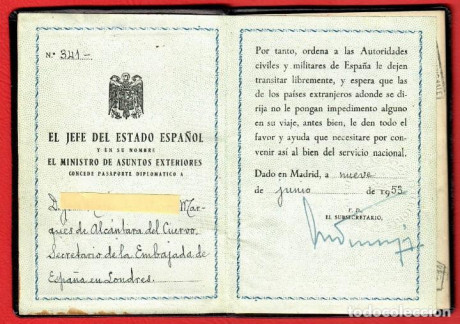 N.º 341-
EL JEFE DEL ESTADO ESPAÑOL
Y EN SU NOMBRE
EL MINISTRO DE ASUNTOS EXTERIORES
CONCEDE PASAPORTE DIPLOMATICO A
Mar-
qués de Alcántara del Cuervo,
Secretario de la Embajada de
España en Londres.
Por tanto, ordena a las Autoridades
civiles y militares de España le dejen
transitar libremente, y espera que las
de los países extranjeros adonde se di-
rija no le pongan impedimento alguno
en su viaje, antes bien, le den todo el
favor y ayuda que necesitare por con-
venir así al bien del servicio nacional.
Dado en Madrid, a nueve
de junio de 1955
P. D.
EL SUBSECRETARIO,
todocoleccion